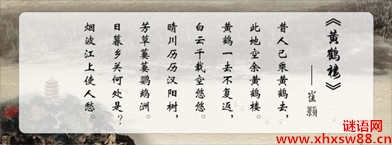 《黄鹤楼》
——崔颢
昔人已乘黄鹤去，
此地空余黄鹤楼。
黄鹤一去不复返，
白云千载空悠悠。
晴川历历汉阳树，
芳草萋萋鹦鹉洲。
日暮乡关何处是？
烟波江上使人愁。
谜语网
www.xhxsw88.cn